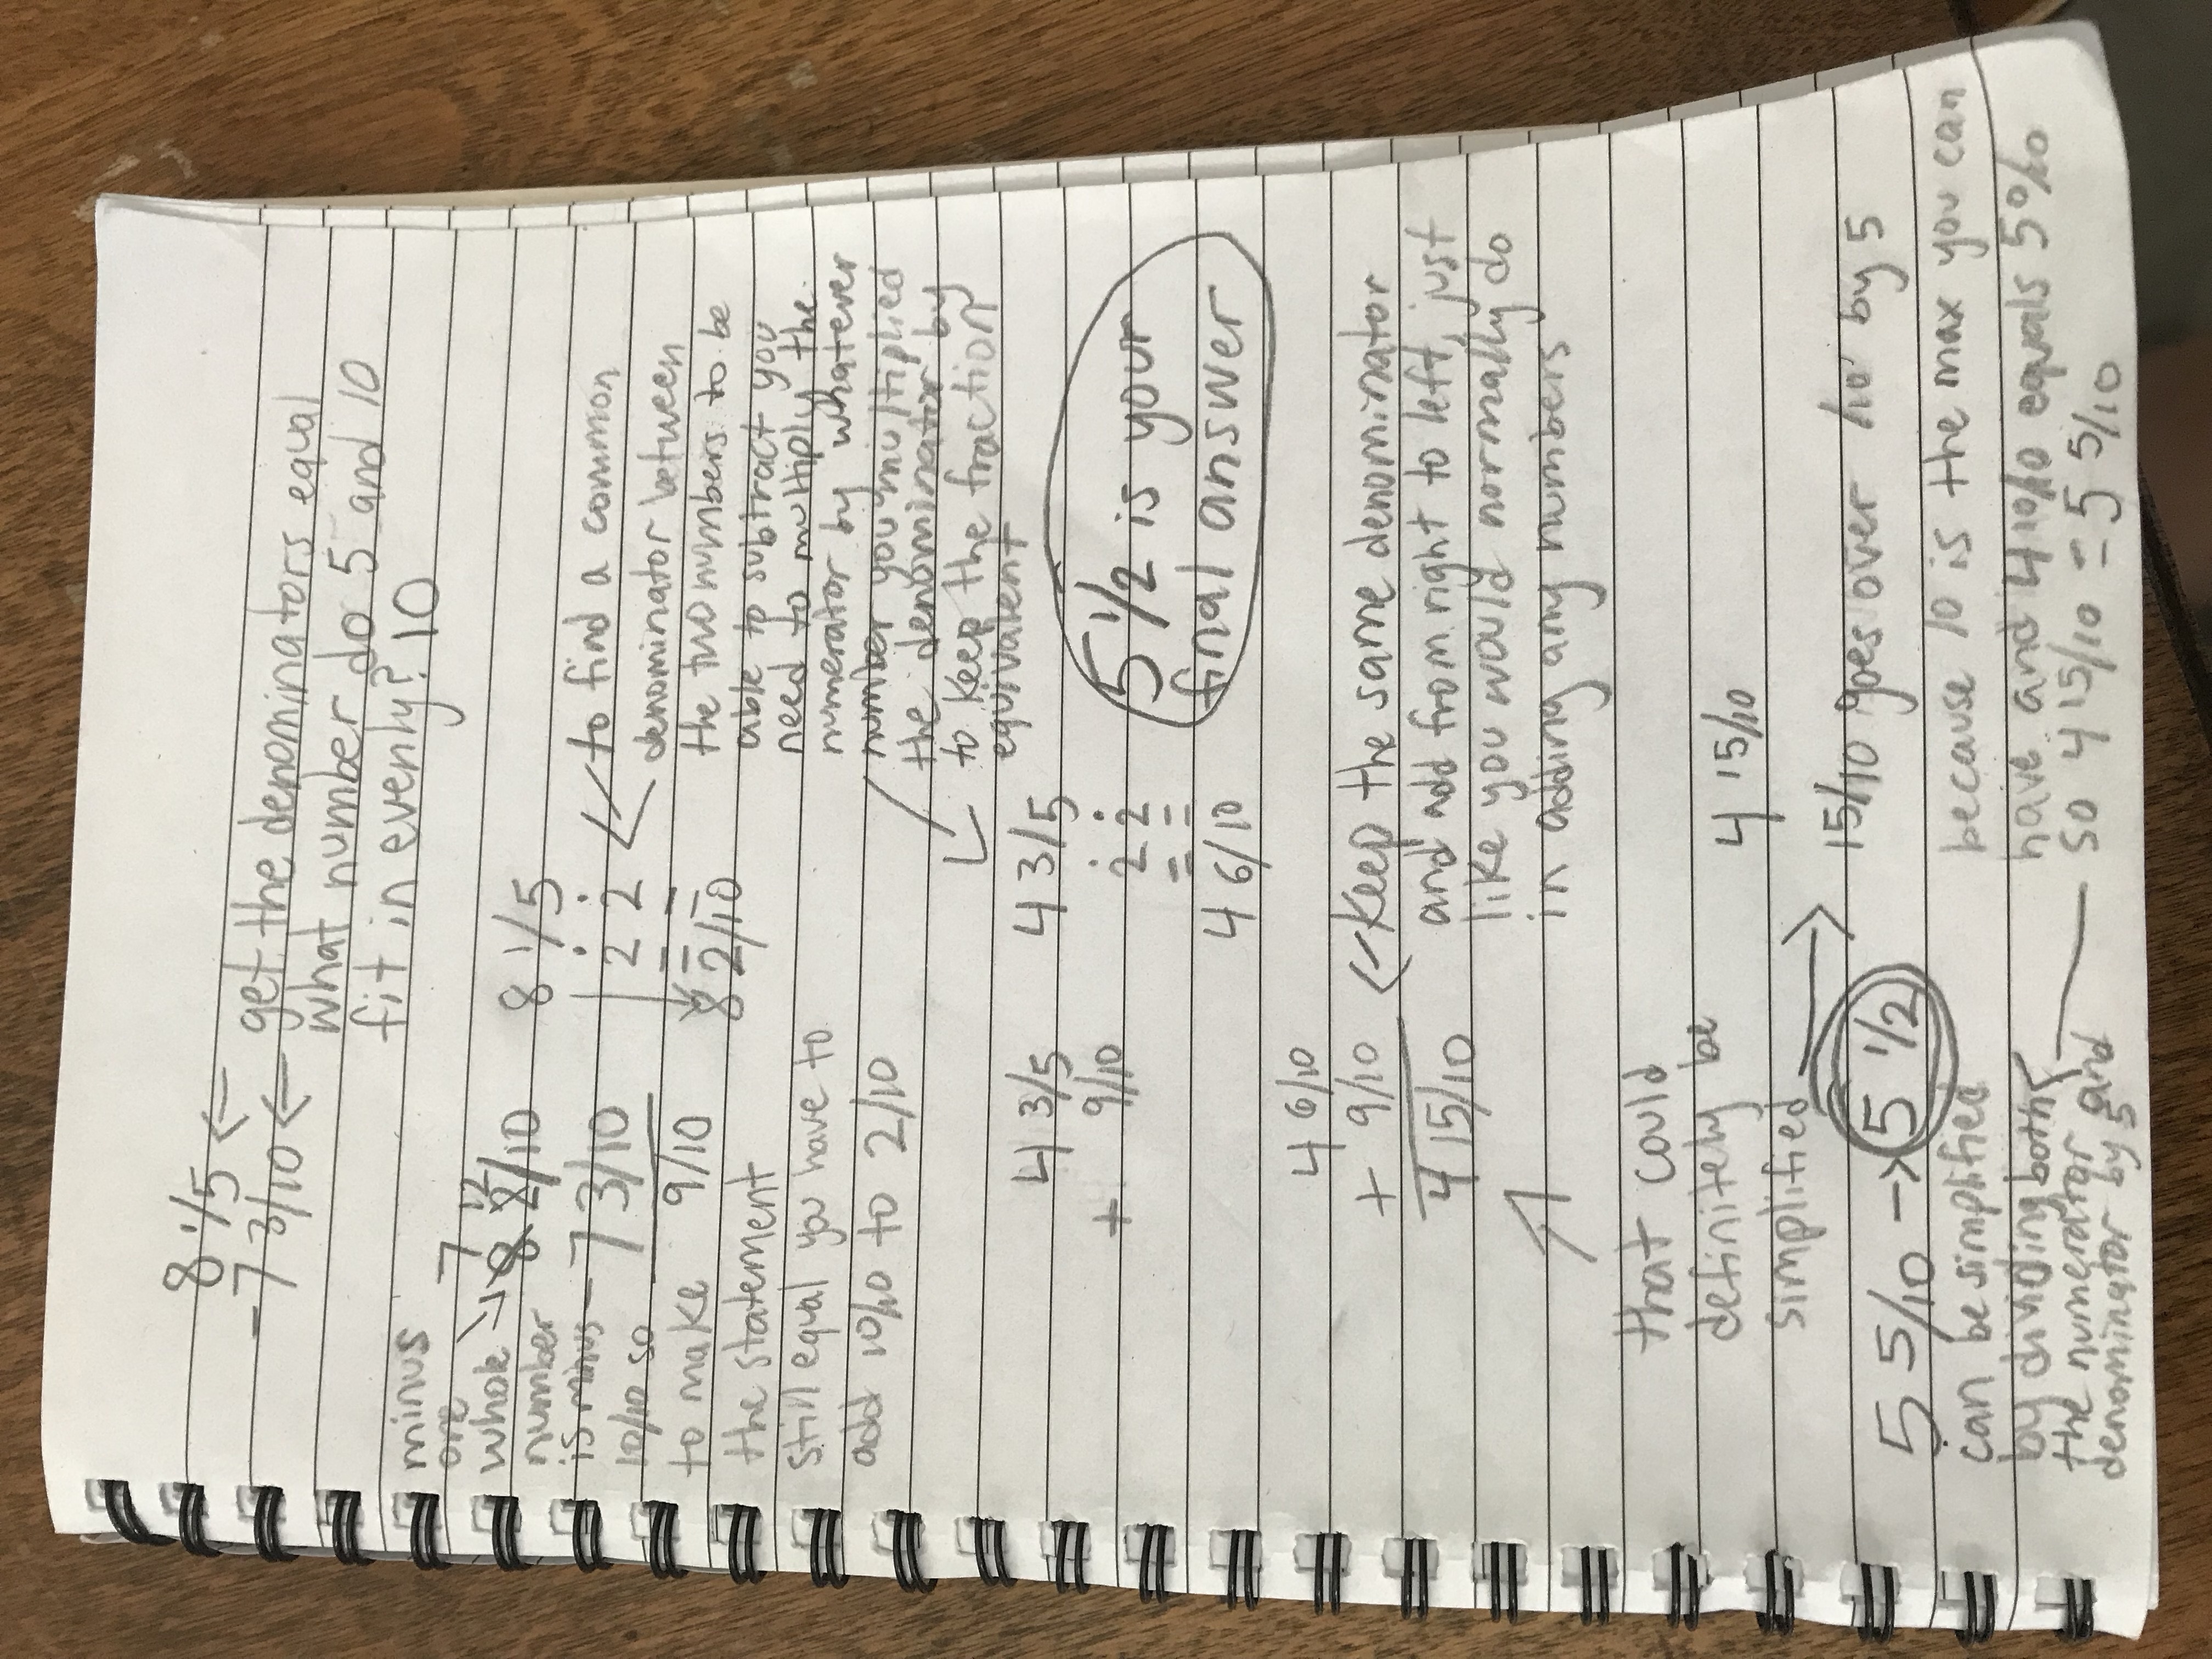 8 1/5 ←
- 7 3/10 ← get the denominators equal
what number do 5 and 10
fit in evenly? 10
minus
one
whole → 8 2/10
number
is minus - 7 3/10
10/10 so
to make 9/10
the statement
still equal you have to
add 10/10 to 2/10
7 12
8 1/5
· ·
2 2
= =
8 2/10
← to find a common
denominator between
the two numbers to be
able to subtract you
need to multiply the
numerator by whatever
number you multiplied
the denominator by
to keep the fraction
equivalent
4 3/5
+ 9/10
4 3/5
· ·
2 2
= =
4 6/10
5 1/2 is your
final answer
4 6/10
+ 9/10
4 15/10
← Keep the same denominator
and add from right to left, just
like you would normally do
in adding any numbers
that could
definitely be
simplified
4 15/10
5 5/10 → 5 1/2
can be simplified
by dividing both
the numerator and
denominator by 5
15/10 goes over /10 by 5
because 10 is the max you can
have and 4 10/10 equals 5 0/10
so 4 15/10 = 5 5/10